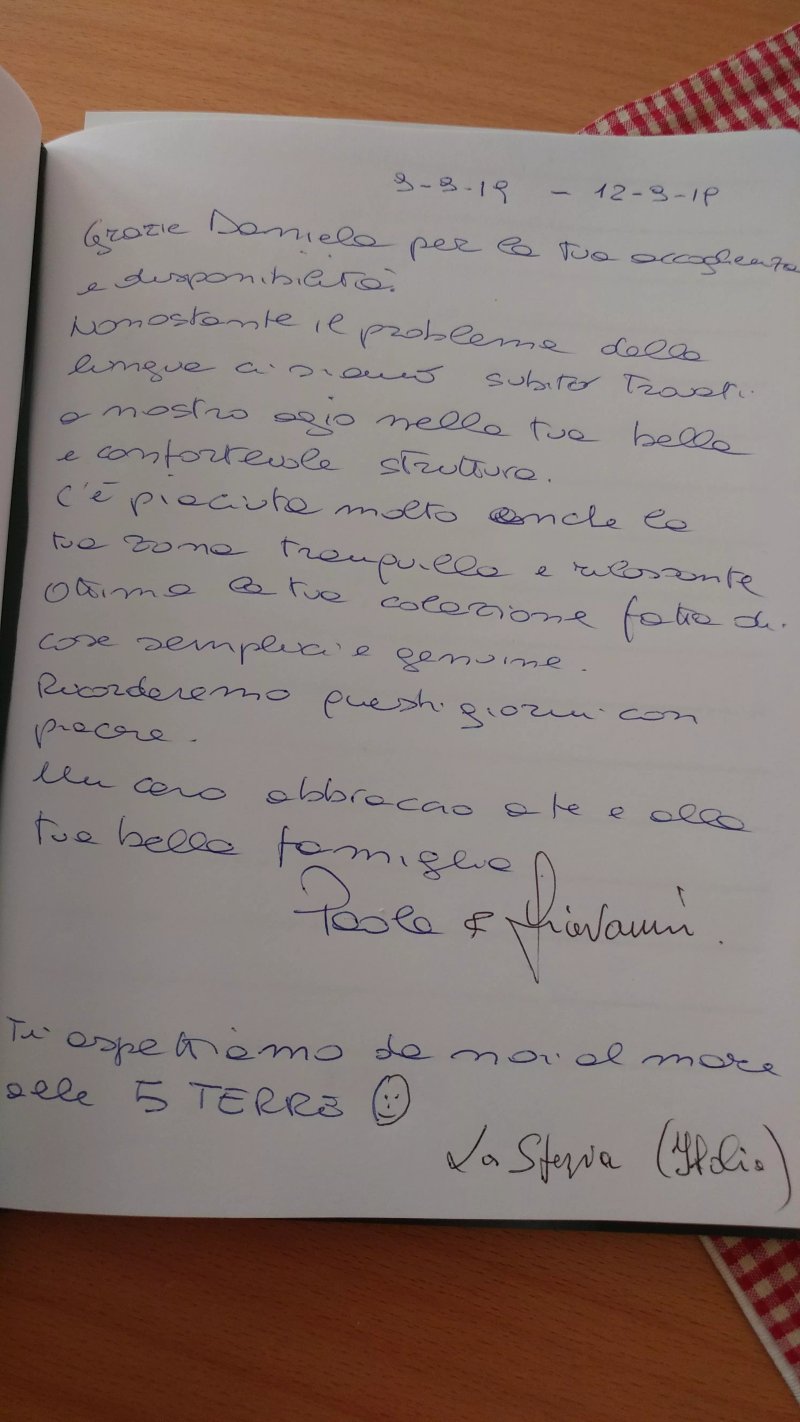 9-9-19 - 12-9-19
Grazie Daniela per la tua accoglienza
e disponibilità.
Nonostante il problema della
lingua ci siamo subito trovati
a nostro agio nella tua bella
e confortevole struttura.
C'è piaciuta molto anche la
tua zona tranquilla e rilassante
Ottima la tua colazione fatta di
cose semplici e genuine.
Ricorderemo questi giorni con
piacere.
Un caro abbraccio a te e alla
tua bella famiglia
Paola & Giovanni.
Ti aspettiamo da noi al mare
alle 5 TERRE
La Spezia (Italia)